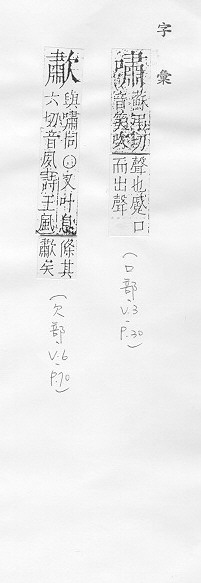 字彙
嘯 蘇弔切音笑吹聲也蹙口而出聲
(口部, V.3 P.30)
歗 與嘯同○又叶息六切音夙詩王風條其歗矣
(欠部, V.6 P.70)